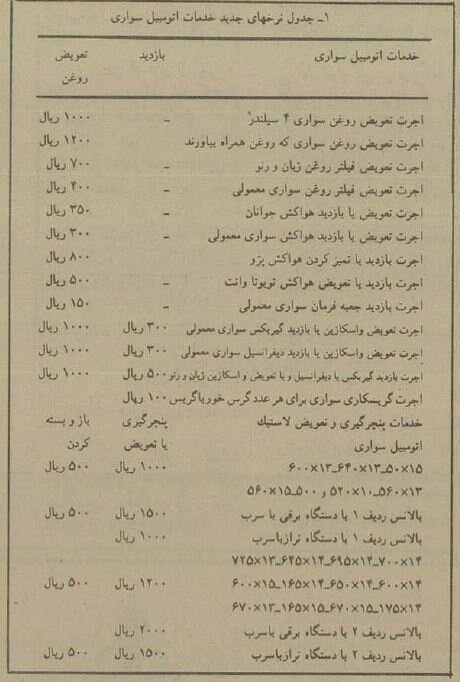 ۱ـ جدول نرخهای جدید خدمات اتومبیل سواری
خدمات اتومبیل سواری بازدید تعویض روغن
اجرت تعویض روغن سواری ۴ سیلندر ـ ۱۰۰۰ ریال
اجرت تعویض روغن سواری که روغن همراه بیاورند ۱۲۰۰ ریال
اجرت تعویض فیلتر روغن ژیان و رنو ـ ۷۰۰ ریال
اجرت تعویض فیلتر روغن سواری معمولی ـ ۴۰۰ ریال
اجرت تعویض یا بازدید هواکش جوانان ـ ۳۵۰ ریال
اجرت تعویض یا بازدید هواکش سواری معمولی ـ ۳۰۰ ریال
اجرت بازدید یا تمیز کردن هواکش پژو ۸۰۰ ریال
اجرت بازدید یا تعویض هواکش تویوتا وانت ـ ۵۰۰ ریال
اجرت بازدید جعبه فرمان سواری معمولی ـ ۱۵۰ ریال
اجرت تعویض واسکازین یا بازدید گیربکس سواری معمولی ۳۰۰ ریال ۱۰۰۰ ریال
اجرت تعویض واسکازین یا بازدید دیفرانسیل سواری معمولی ۳۰۰ ریال ۱۰۰۰ ریال
اجرت بازدید گیربکس یا دیفرانسیل و یا تعویض و اسکازین ژیان و رنو ۵۰۰ ریال ۱۰۰۰ ریال
اجرت گریسکاری سواری برای هر عدد گرس خور با گریس ۱۰۰ ریال
خدمات پنچرگیری و تعویض لاستیك پنچرگیری باز و بسته
اتومبیل سواری یا تعویض کردن
۱۵×۵۰ـ۱۳×۶۴۰ـ۱۳×۶۰۰ ۱۰۰۰ ریال ۵۰۰ ریال
۱۳×۵۶۰ـ۱۰×۵۲۰ و ۵۰۰ـ۱۵×۵۶۰
بالانس ردیف ۱ با دستگاه برقی با سرب ۱۵۰۰ ریال ۵۰۰ ریال
بالانس ردیف ۱ با دستگاه ترازباسرب ۱۰۰۰ ریال
۱۴×۷۰۰ـ۱۴×۶۹۵ـ۱۴×۶۴۵ـ۱۳×۷۲۵
۱۴×۶۰۰ـ۱۴×۶۵۰ـ۱۴×۱۶۵ـ۱۵×۶۰۰ ۱۲۰۰ ریال ۵۰۰ ریال
۱۴×۱۷۵ـ۱۵×۶۷۰ـ۱۵×۱۶۵ـ۱۳×۶۷۰
بالانس ردیف ۲ با دستگاه برقی باسرب ۲۰۰۰ ریال
بالانس ردیف ۲ با دستگاه ترازباسرب ۱۵۰۰ ریال ۵۰۰ ریال